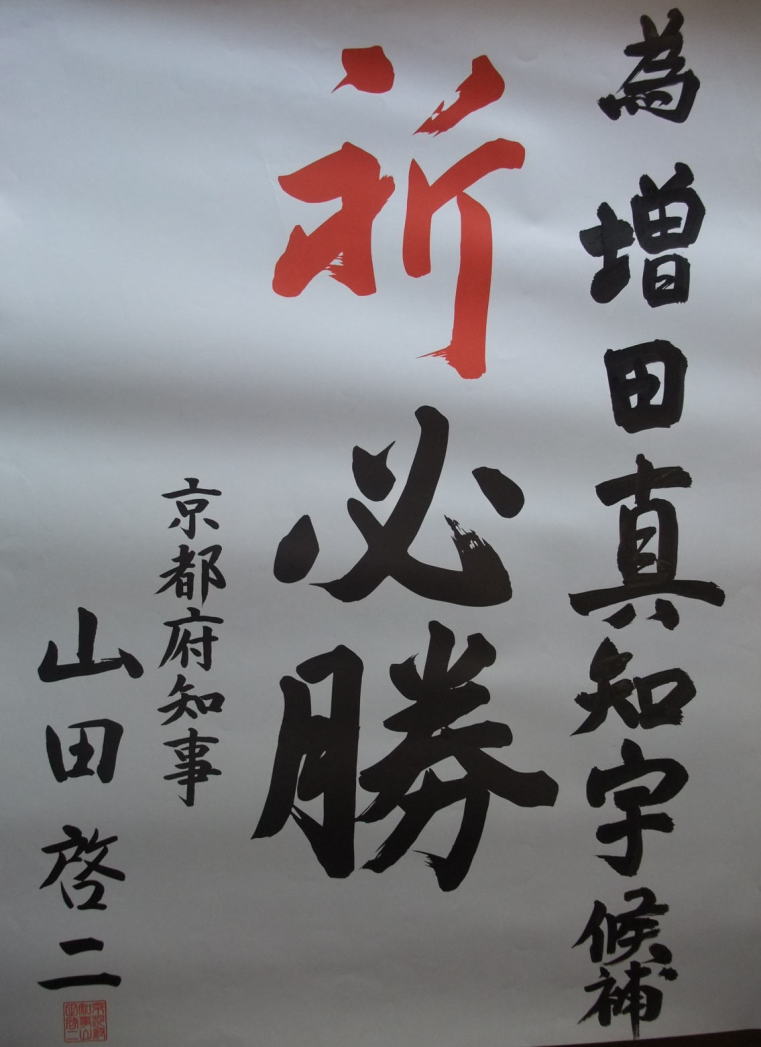 為増田真知宇候補
祈必勝
京都府知事
山田啓二